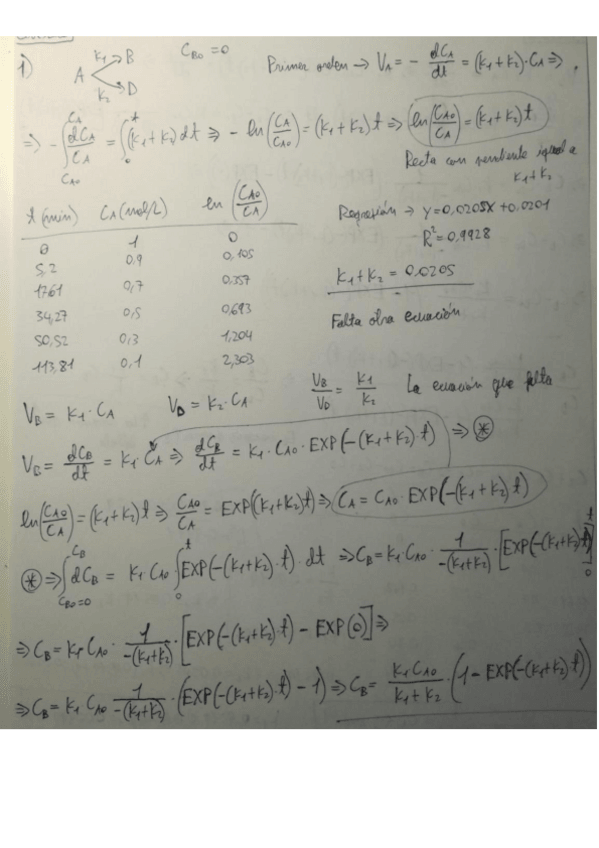 1) A k1→B k2→D CB0=0 Primer orden → VA = - dCA/dt = (k1+k2)·CA ⇒
⇒ - ∫CA0^CA dCA/CA = ∫0^t (k1+k2) dt ⇒ - ln(CA/CA0) = (k1+k2) t ⇒ ln(CA0/CA) = (k1+k2) t
Recta con pendiente igual a
k1+k2
t (min) CA (mol/L) ln (CA0/CA)
Regresión → y=0,0205x+0,0201
R²=0,9928
0 1 0
5,2 0,9 0,105
1761 0,7 0,357
k1+k2 = 0,0205
34,27 0,5 0,693
Falta otra ecuación
50,52 0,3 1,204
113,81 0,1 2,303
VB = k1·CA VD = k2·CA VB/VD = k1/k2 La ecuación que falta
VB = dCB/dt = k1·CA ⇒ dCB/dt = k1·CA0·EXP(-(k1+k2)·t) ⇒ ⊛
ln(CA0/CA) = (k1+k2) t ⇒ CA0/CA = EXP((k1+k2)t) ⇒ CA = CA0·EXP(-(k1+k2) t)
⊛ ⇒ ∫CB0=0^CB dCB = k1·CA0 ∫0^t EXP(-(k1+k2)·t)·dt ⇒ CB = k1·CA0· 1/-(k1+k2) ·[EXP(-(k1+k2)t)]0^t
⇒ CB = k1·CA0· 1/-(k1+k2) ·[EXP(-(k1+k2)·t) - EXP(0)] ⇒
⇒ CB = k1 CA0 1/-(k1+k2) ·(EXP(-(k1+k2)·t) - 1) ⇒ CB = k1 CA0/k1+k2 ·(1 - EXP(-(k1+k2) t))